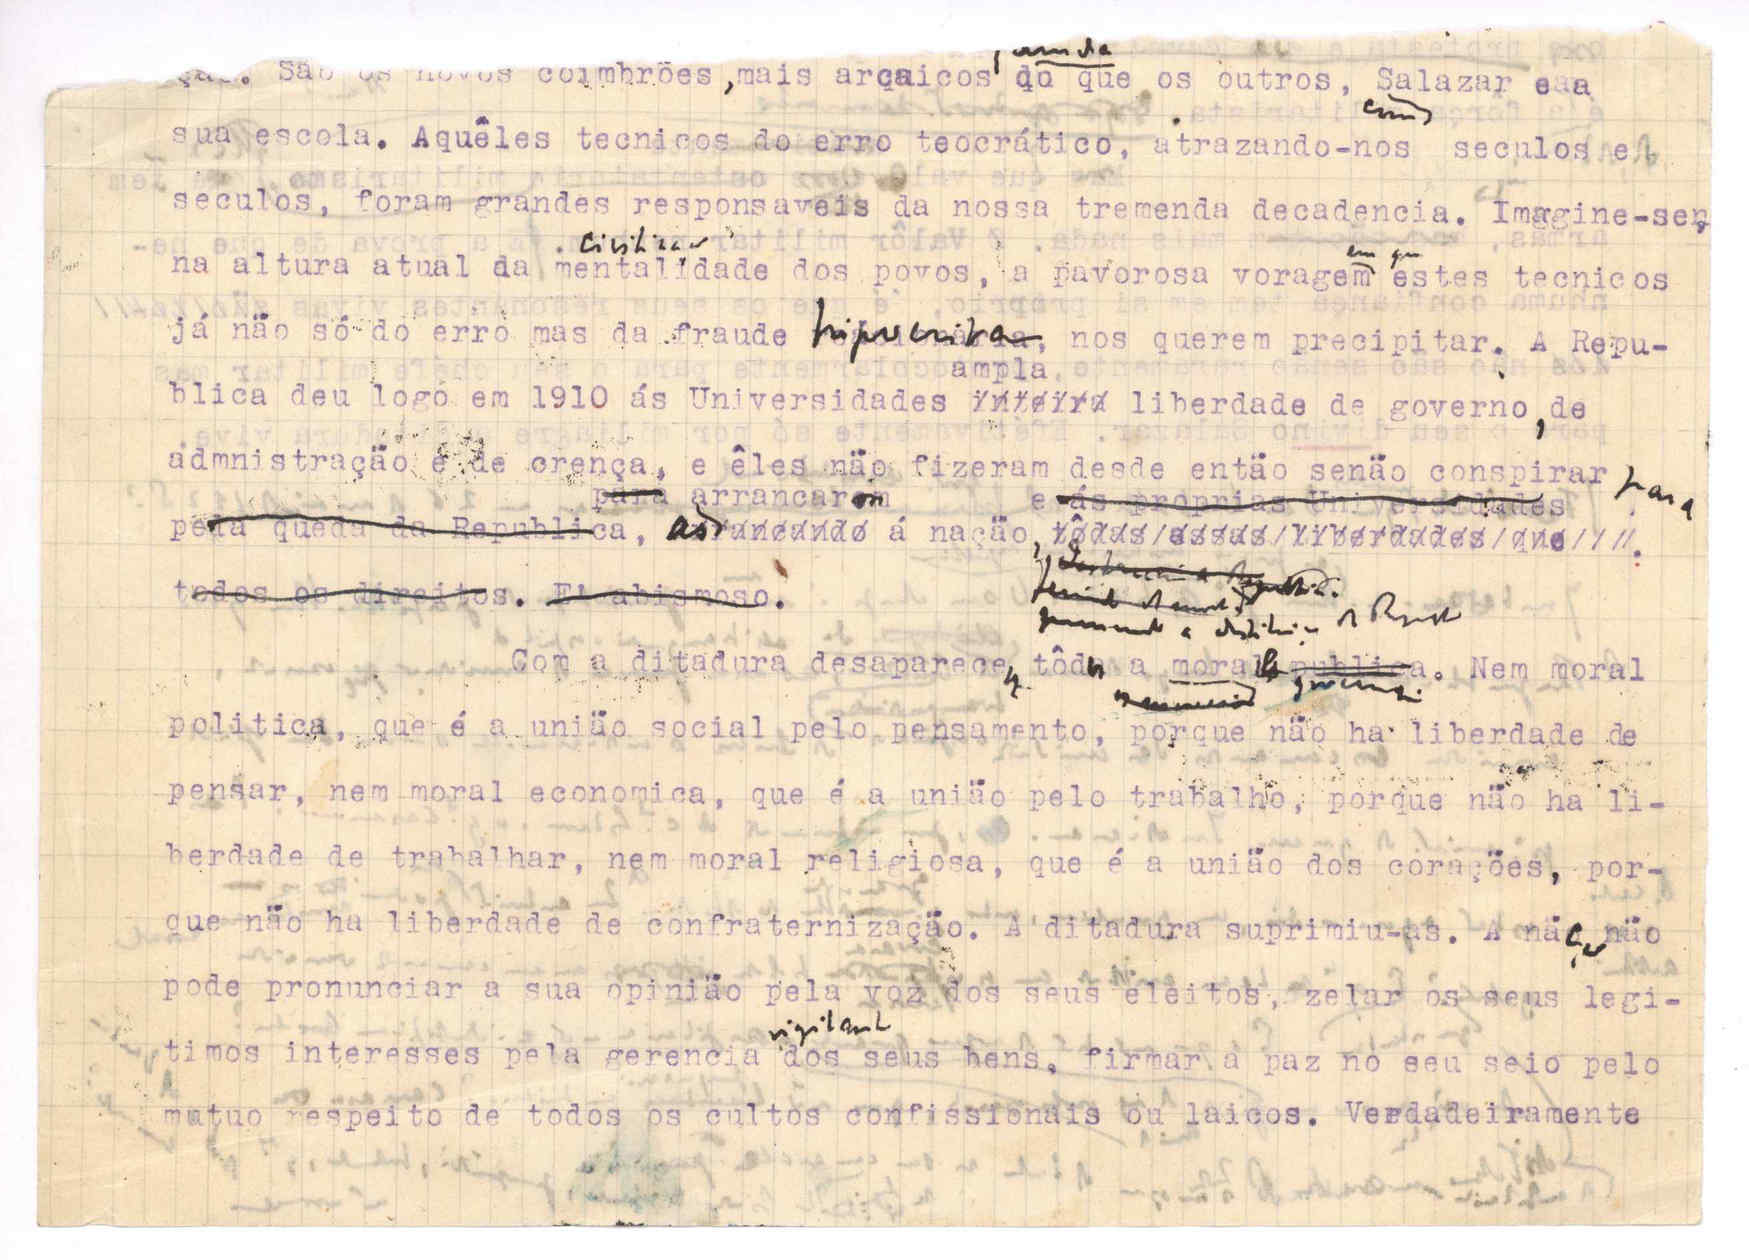 ainda
São os novos coimbrões, mais arcaicos do que os outros, Salazar e a
com
sua escola. Aquêles tecnicos do erro teocrático, atrazando-nos seculos e
seculos, foram grandes responsaveis da nossa tremenda decadencia. Imagine-se,
civilizar
em que
na altura atual da mentalidade dos povos, a pavorosa voragem estes tecnicos
já não só do erro mas da fraude hipocrita, nos querem precipitar. A Repu-
ampla
blica deu logo em 1910 ás Universidades inteira liberdade de governo, de
admnistração e de crença, e êles não fizeram desde então senão conspirar para
para arrancarem e ás proprias Universidades
pela queda da Republica, arrancando á nação, tôdas essas liberdades que
todos os direitos. E' abismoso.
Com a ditadura desaparece tôda a moral publica. Nem moral
politica, que é a união social pelo pensamento, porque não ha liberdade de
pensar, nem moral economica, que é a união pelo trabalho, porque não ha li-
berdade de trabalhar, nem moral religiosa, que é a união dos corações, por-
que não ha liberdade de confraternização. A ditadura suprimiu-as. A nação não
pode pronunciar a sua opinião pela voz dos seus eleitos, zelar os seus legi-
vigilante
timos interesses pela gerencia dos seus bens, firmar a paz no seu seio pelo
mutuo respeito de todos os cultos confissionais ou laicos. Verdadeiramente